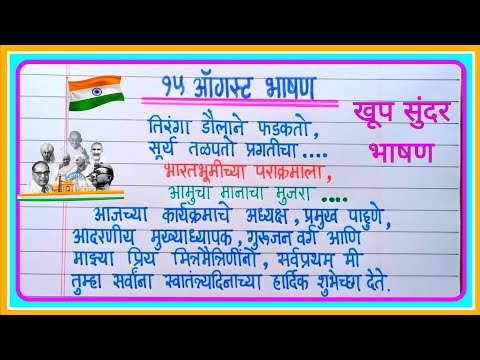 १५ ऑगस्ट भाषण
तिरंगा डौलाने फडकतो,
सूर्य तळपतो प्रगतीचा ....
भारतभूमीच्या पराक्रमाला,
आमुचा मानाचा मुजरा ....
आजच्या कार्यक्रमाचे अध्यक्ष, प्रमुख पाहुणे,
आदरणीय मुख्याध्यापक, गुरुजन वर्ग आणि
माझ्या प्रिय मित्रमैत्रिणींनो, सर्वप्रथम मी
तुम्हा सर्वांना स्वातंत्र्यदिनाच्या हार्दिक शुभेच्छा देते.
खूप सुंदर
भाषण